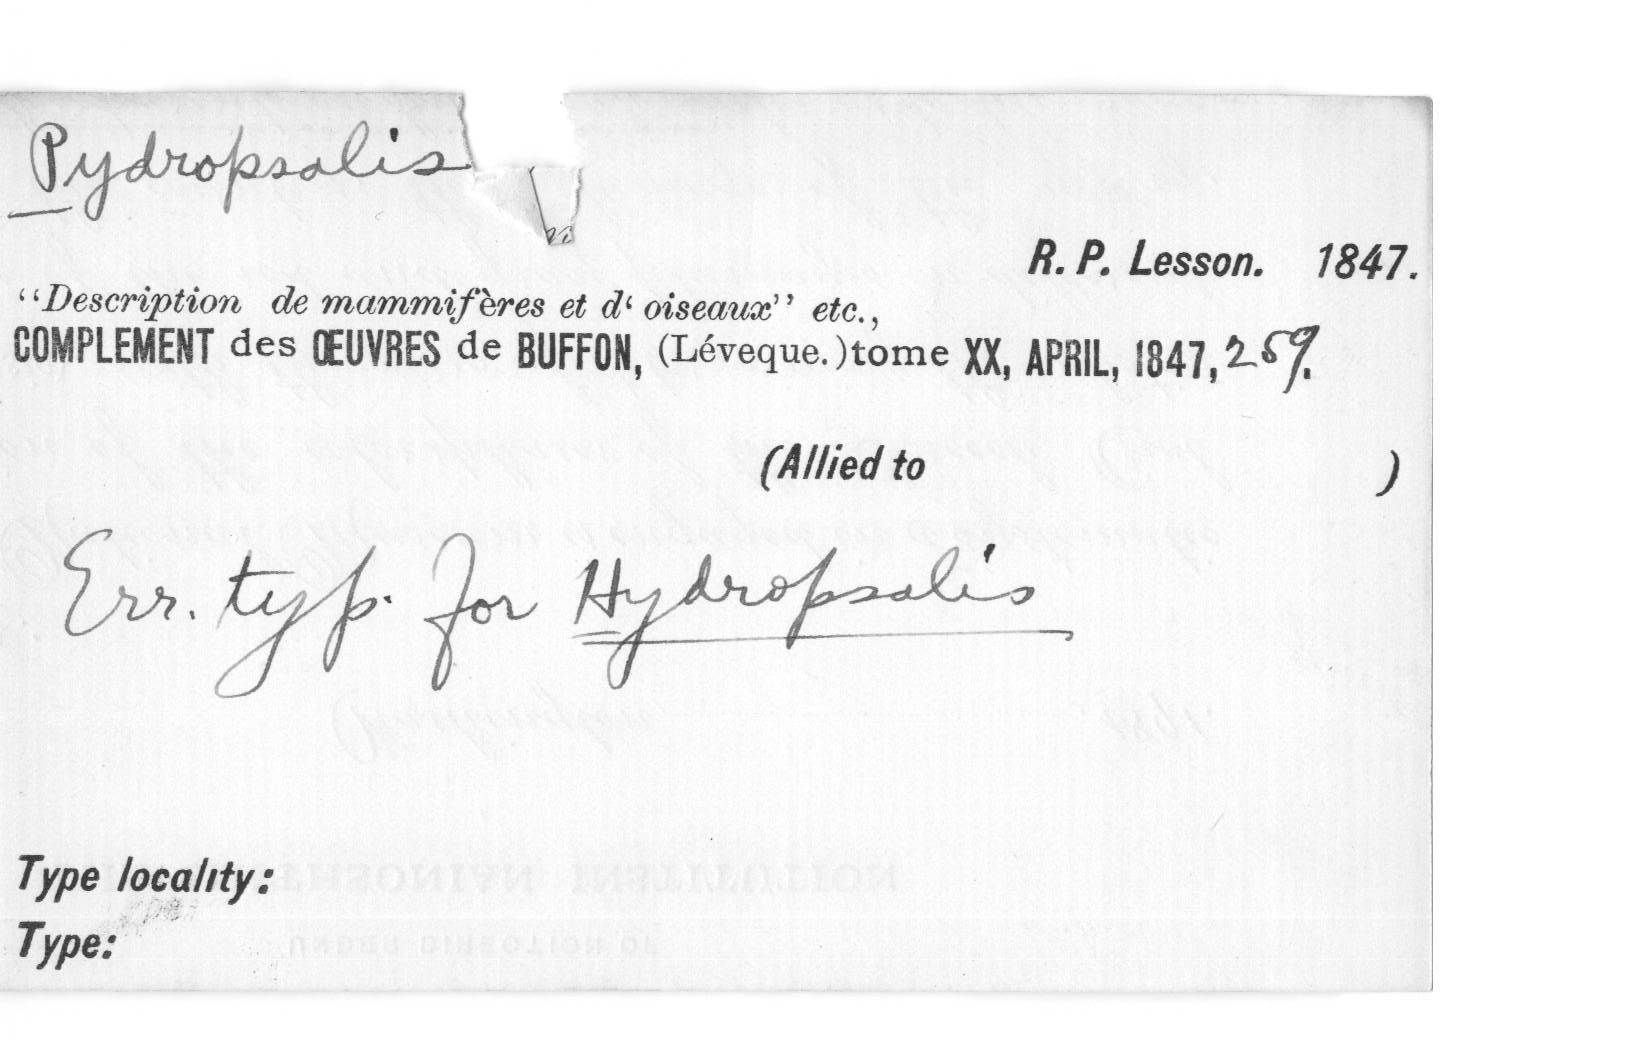 Pydropsalis
R. P. Lesson. 1847.
“Description de mammifères et d‘ oiseaux” etc.,
COMPLEMENT des ŒUVRES de BUFFON, (Léveque.) tome XX, APRIL, 1847, 259.
(Allied to )
Err. typ. for Hydropsalis
Type locality:
Type: